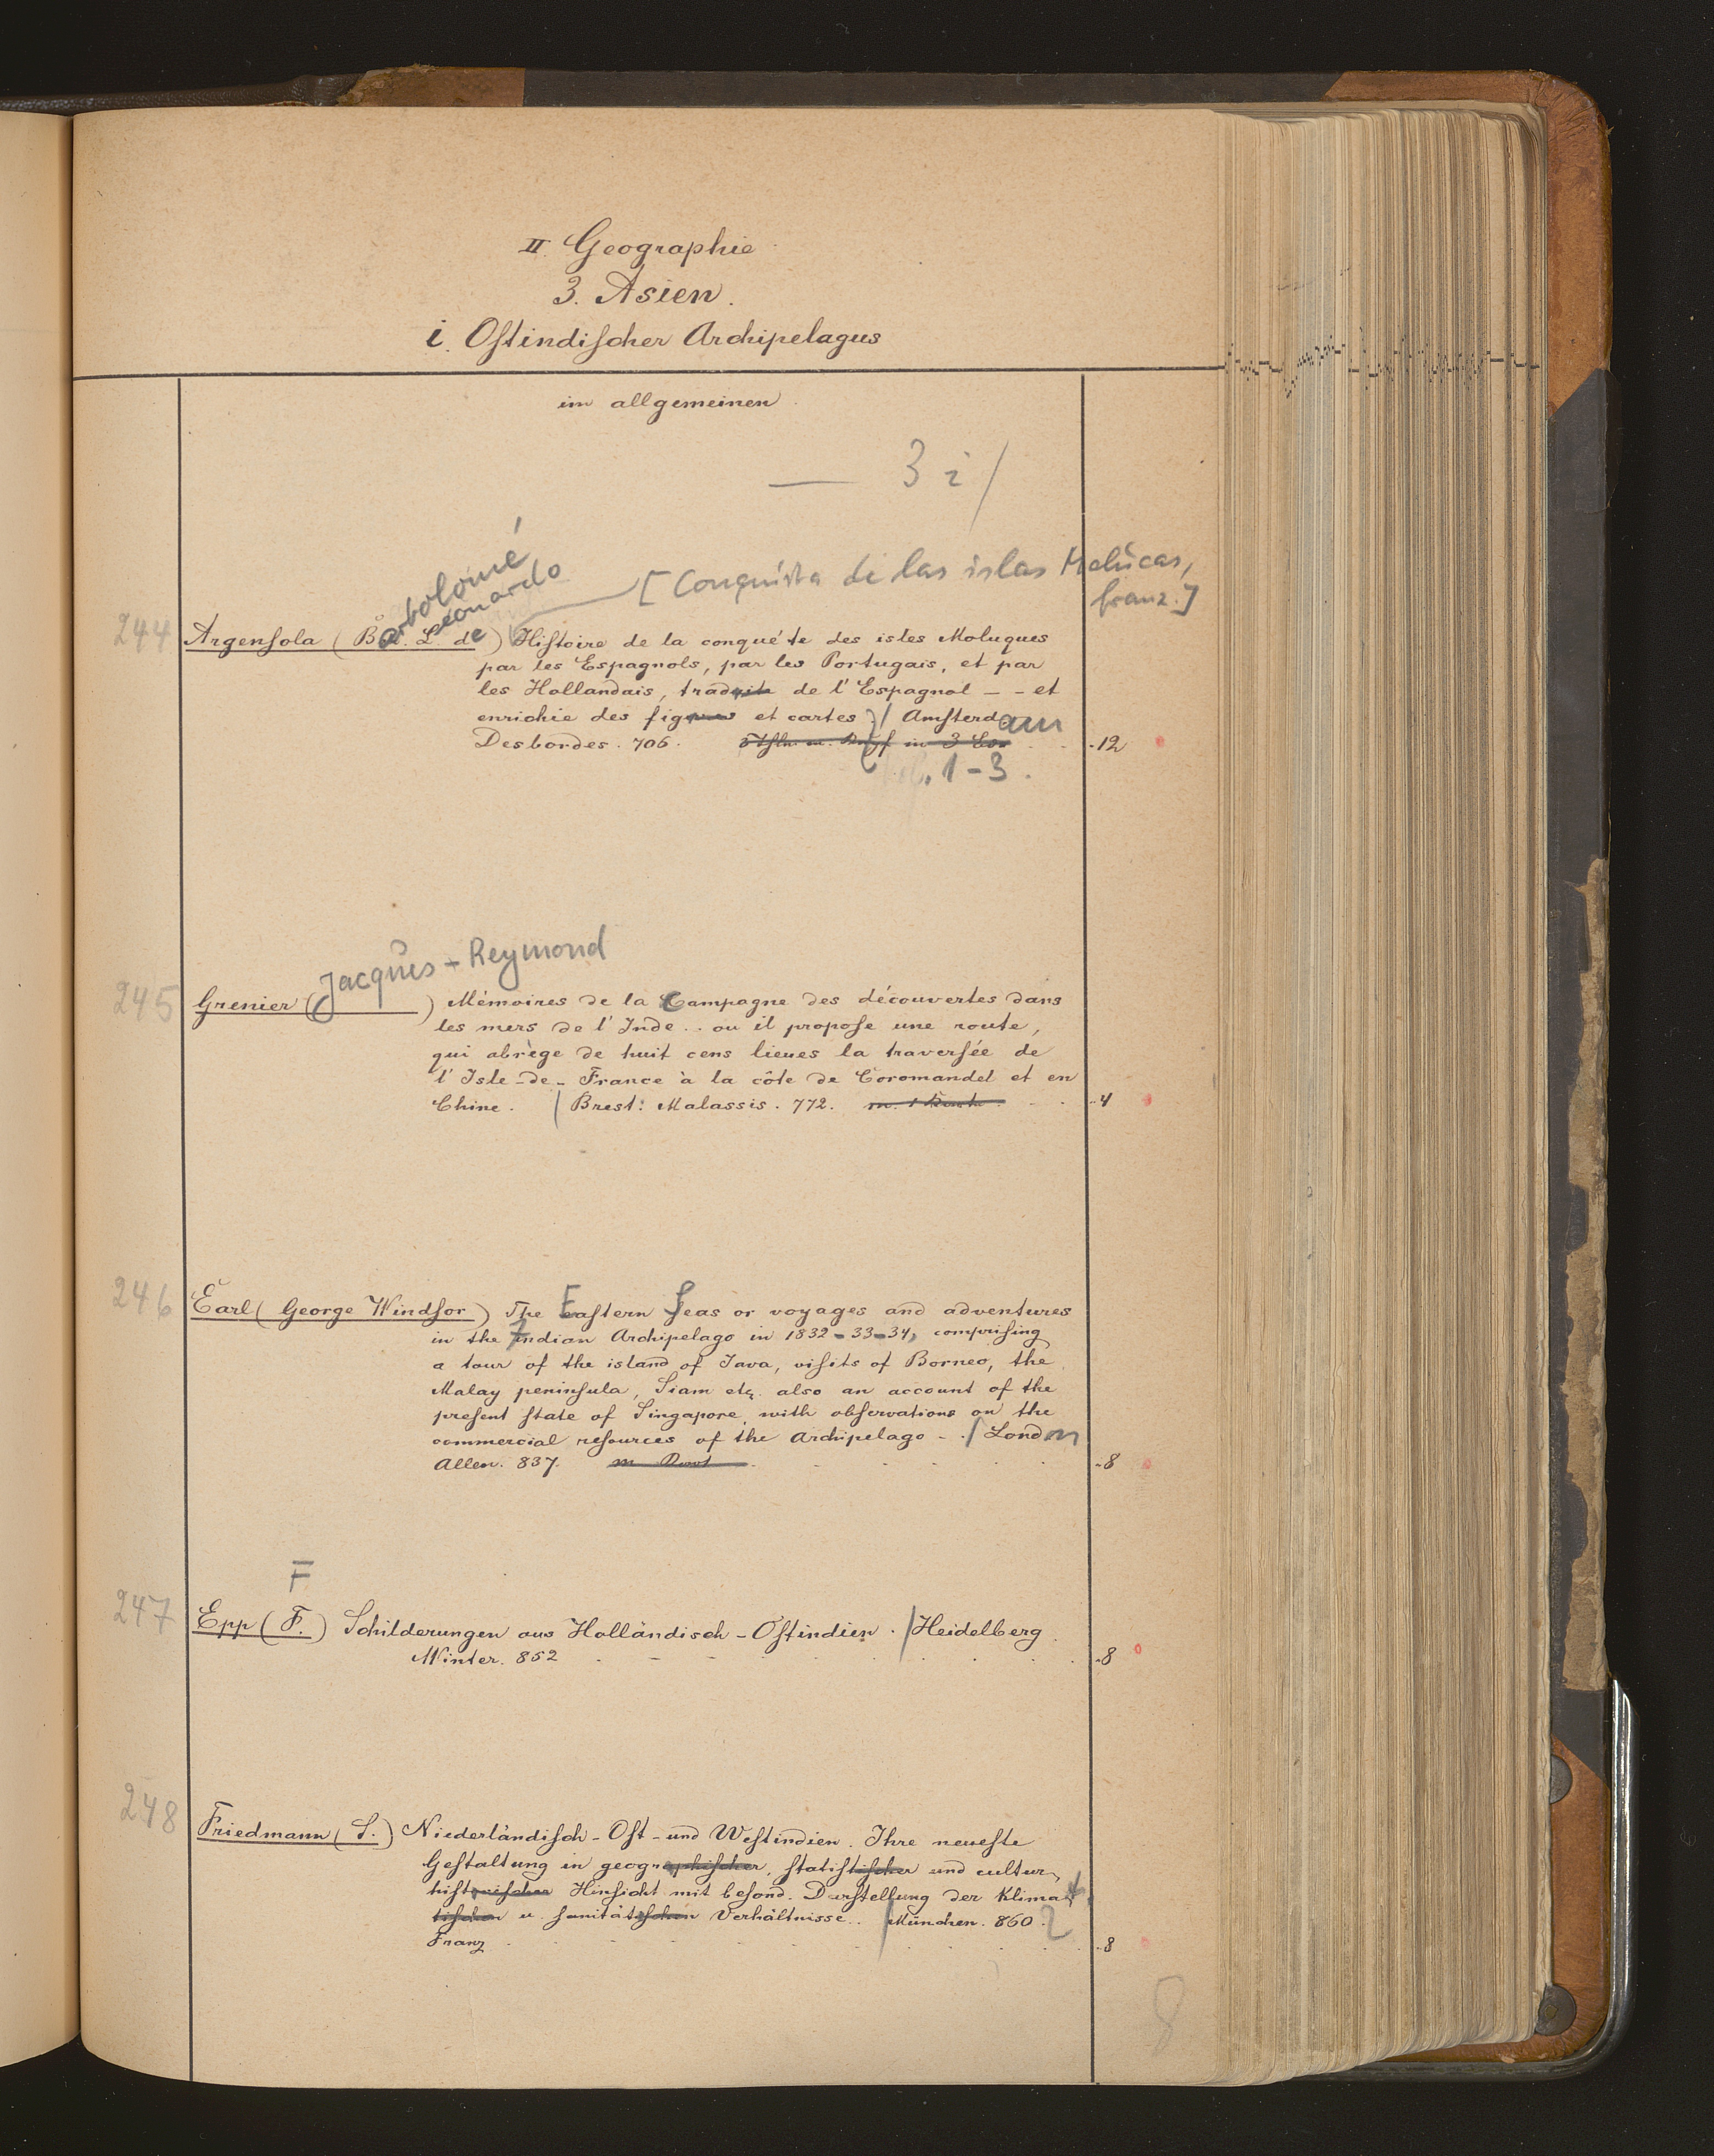 II. Geographie
3. Asien.
i. Ostindischer Archipelagus
im allgemeinen
— 3 i /
[Conquista de las islas Malucas,
franz.]
artolomé
Leonardo
244 Argensola (B. L. de) Histoire de la conquéte des isles Moluques
par les Espagnols, par les Portugais, et par
les Hollandais, traduite de l'Espagnol - - et
enrichie des figures et cartes / Amsterdam
Desbordes. 706. in 3 -12
1-3.
Jacques-Reymond
245 Grenier ( ) Mémoires de la Campagne des découvertes dans
les mers de l'Inde .. ou il propose une route,
qui abrège de huit cens lieues la traversée de
l'Isle-de-France à la côte de Coromandel et en
Chine. / Brest: Malassis. 772. -4
246 Earl (George Windsor) The Eastern Seas or voyages and adventures
in the Indian Archipelago in 1832-33-34, comprising
a tour of the island of Java, visits of Borneo, the
Malay peninsula, Siam etc. also an account of the
present state of Singapore, with observations on the
commercial resources of the Archipelago - . / London
Allen. 837. -8
F
247 Epp (F.) Schilderungen aus Holländisch-Ostindien. / Heidelberg.
Winter. 852 -8
248 Friedmann (S.) Niederländisch-Ost-und Westindien. Ihre neueste
Gestaltung in geographischer, statistischer und cultur-
historischer Hinsicht mit besond. Darstellung der klima-
tischen u. sanitätischen Verhältnisse.. / München. 860.
Franz -8
8